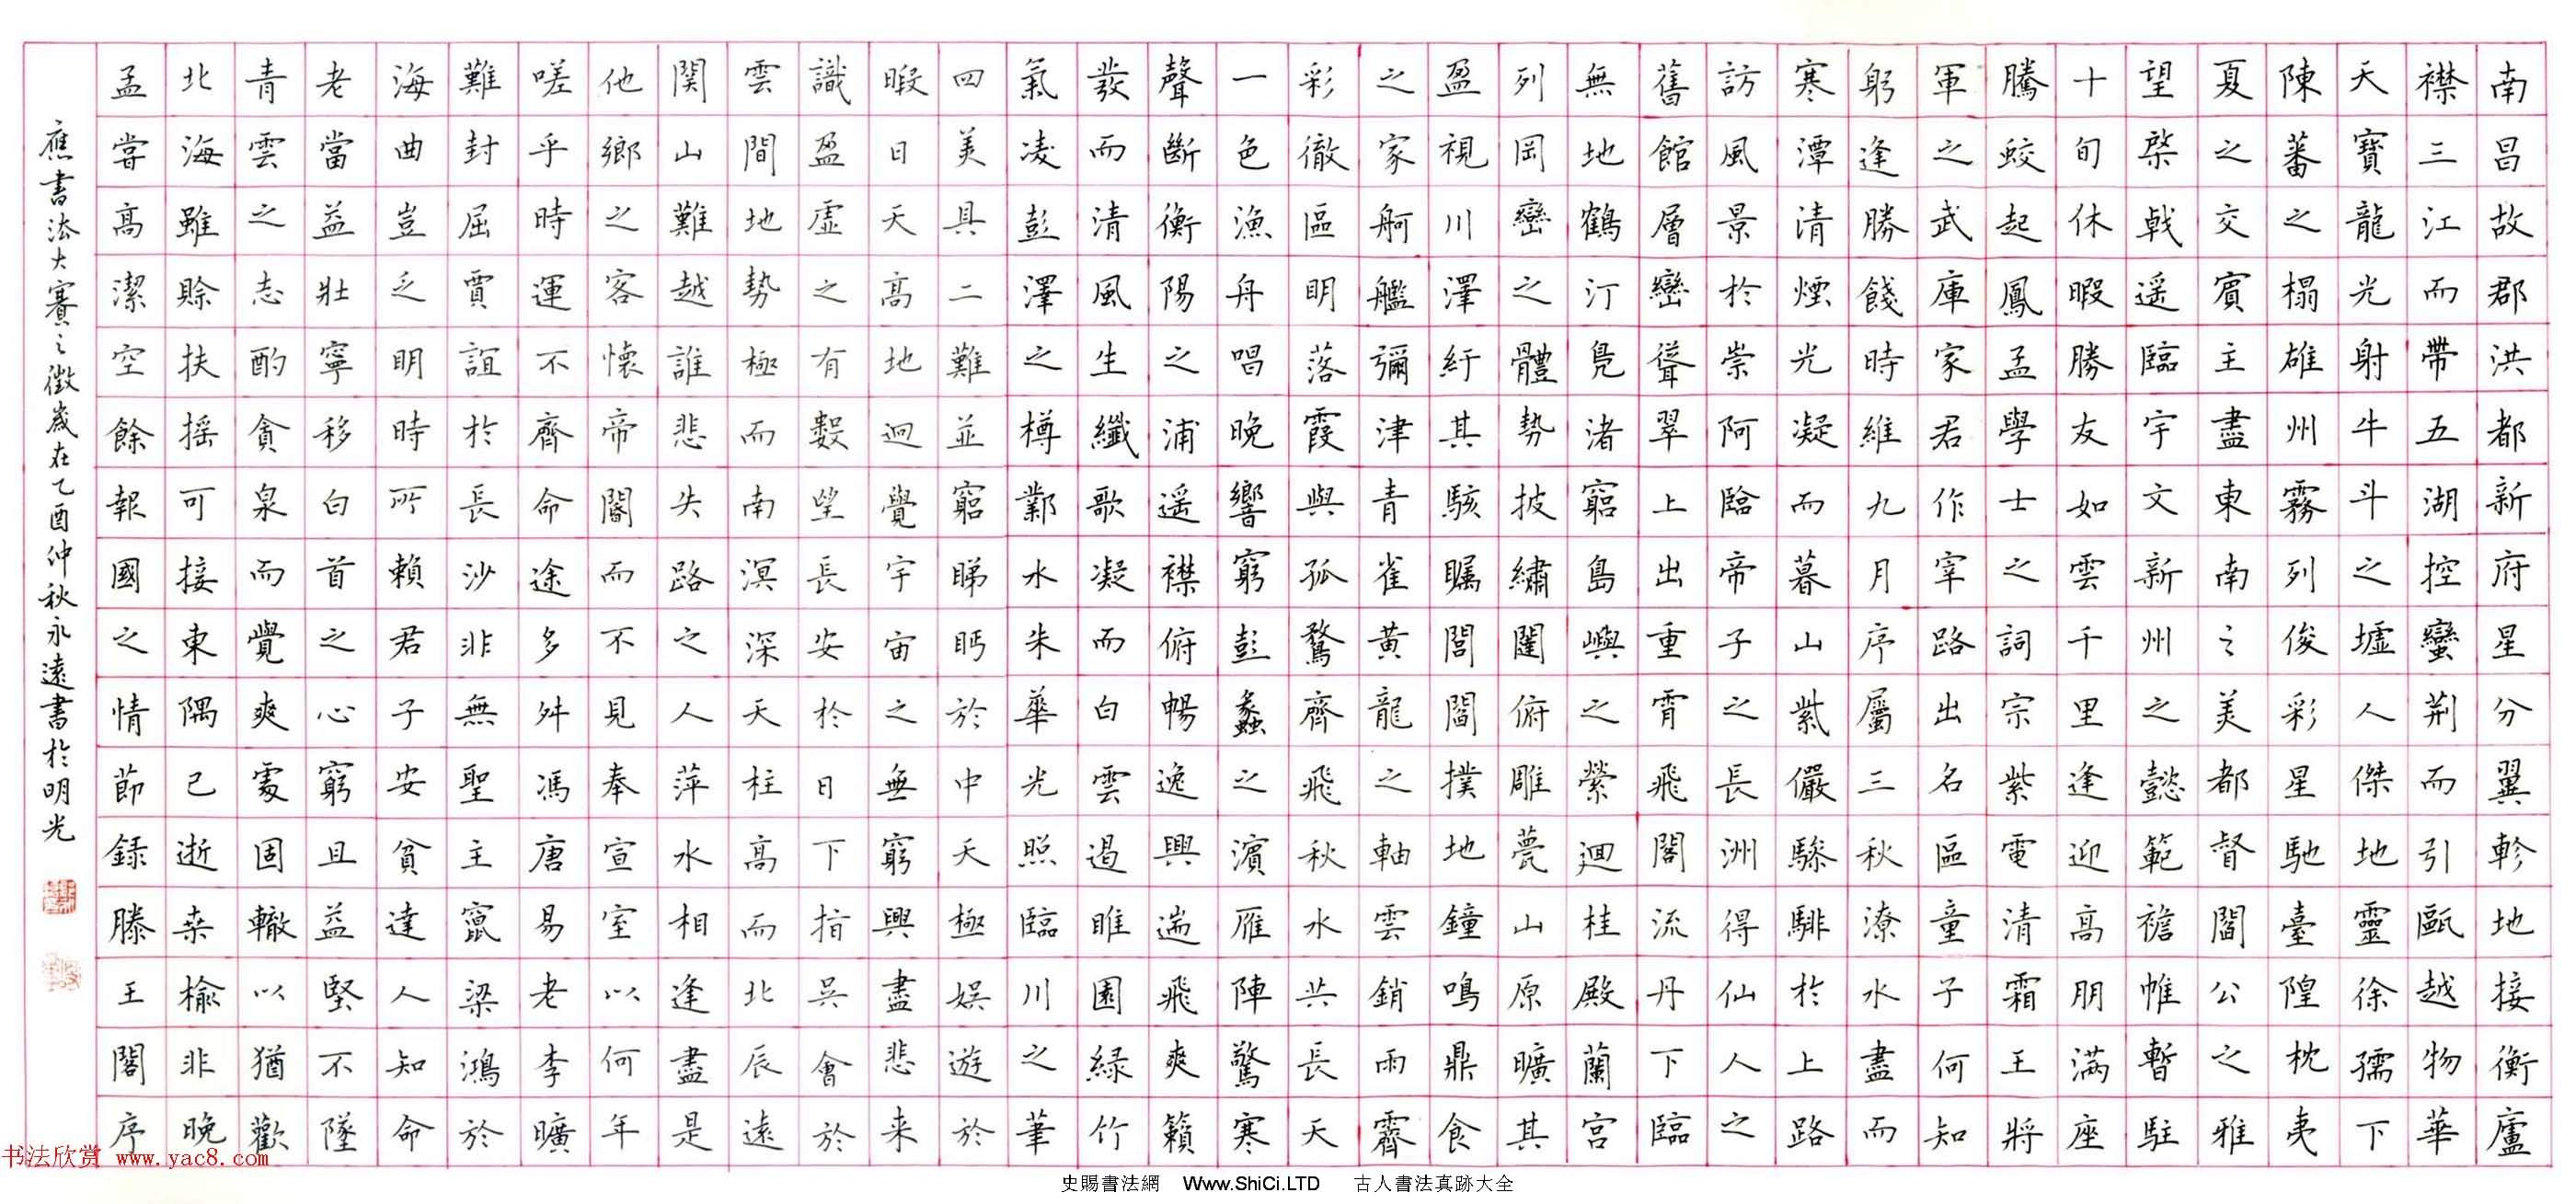 南昌故郡洪都新府星分翼軫地接衡廬
襟三江而帶五湖控蠻荆而引甌越物華
天寶龍光射牛斗之墟人傑地靈徐孺下
陳蕃之榻雄州霧列俊彩星馳臺隍枕夷
夏之交賓主盡東南之美都督閻公之雅
望棨戟遥臨宇文新州之懿範襜帷暫駐
十旬休暇勝友如雲千里逢迎高朋满座
騰蛟起鳳孟學士之詞宗紫電清霜王將
軍之武庫家君作宰路出名區童子何知
躬逢勝餞時維九月序屬三秋潦水盡而
寒潭清煙光凝而暮山紫儼驂騑於上路
訪風景於崇阿臨帝子之長洲得仙人之
舊館層巒聳翠上出重霄飛閣流丹下臨
無地鶴汀凫渚窮島嶼之縈迴桂殿蘭宫
列岡巒之體勢披繡闥俯雕甍山原曠其
盈視川澤紆其駭矚閭閻撲地鐘鳴鼎食
之家舸艦彌津青雀黄龍之軸雲銷雨霽
彩徹區明落霞與孤鶩齊飛秋水共長天
一色漁舟唱晚響窮彭蠡之濱雁陣驚寒
聲斷衡陽之浦遥襟俯暢逸興遄飛爽籟
發而清風生纖歌凝而白雲遏睢園緑竹
氣凌彭澤之樽鄴水朱華光照臨川之筆
四美具二難並窮睇眄於中天極娱遊於
暇日天高地迥覺宇宙之無窮興盡悲来
識盈虚之有數望長安於日下指吴會於
雲間地勢極而南溟深天柱高而北辰遠
関山難越誰悲失路之人萍水相逢盡是
他鄉之客懷帝閽而不見奉宣室以何年
嗟乎時運不齊命途多舛馮唐易老李曠
難封屈賈誼於長沙非無聖主竄梁鴻於
海曲豈乏明時所賴君子安貧達人知命
老當益壯寧移白首之心窮且益堅不墜
青雲之志酌貪泉而覺爽處固轍以猶歡
北海雖賒扶摇可接東隅已逝桑榆非晚
孟嘗高潔空餘報國之情節録滕王閣序
應書法大賽之徵歲在乙酉仲秋永遠書於明光
书法欣赏 www.yac8.com
史賜書法網 Www.ShiCi.LTD 古人書法真跡大全